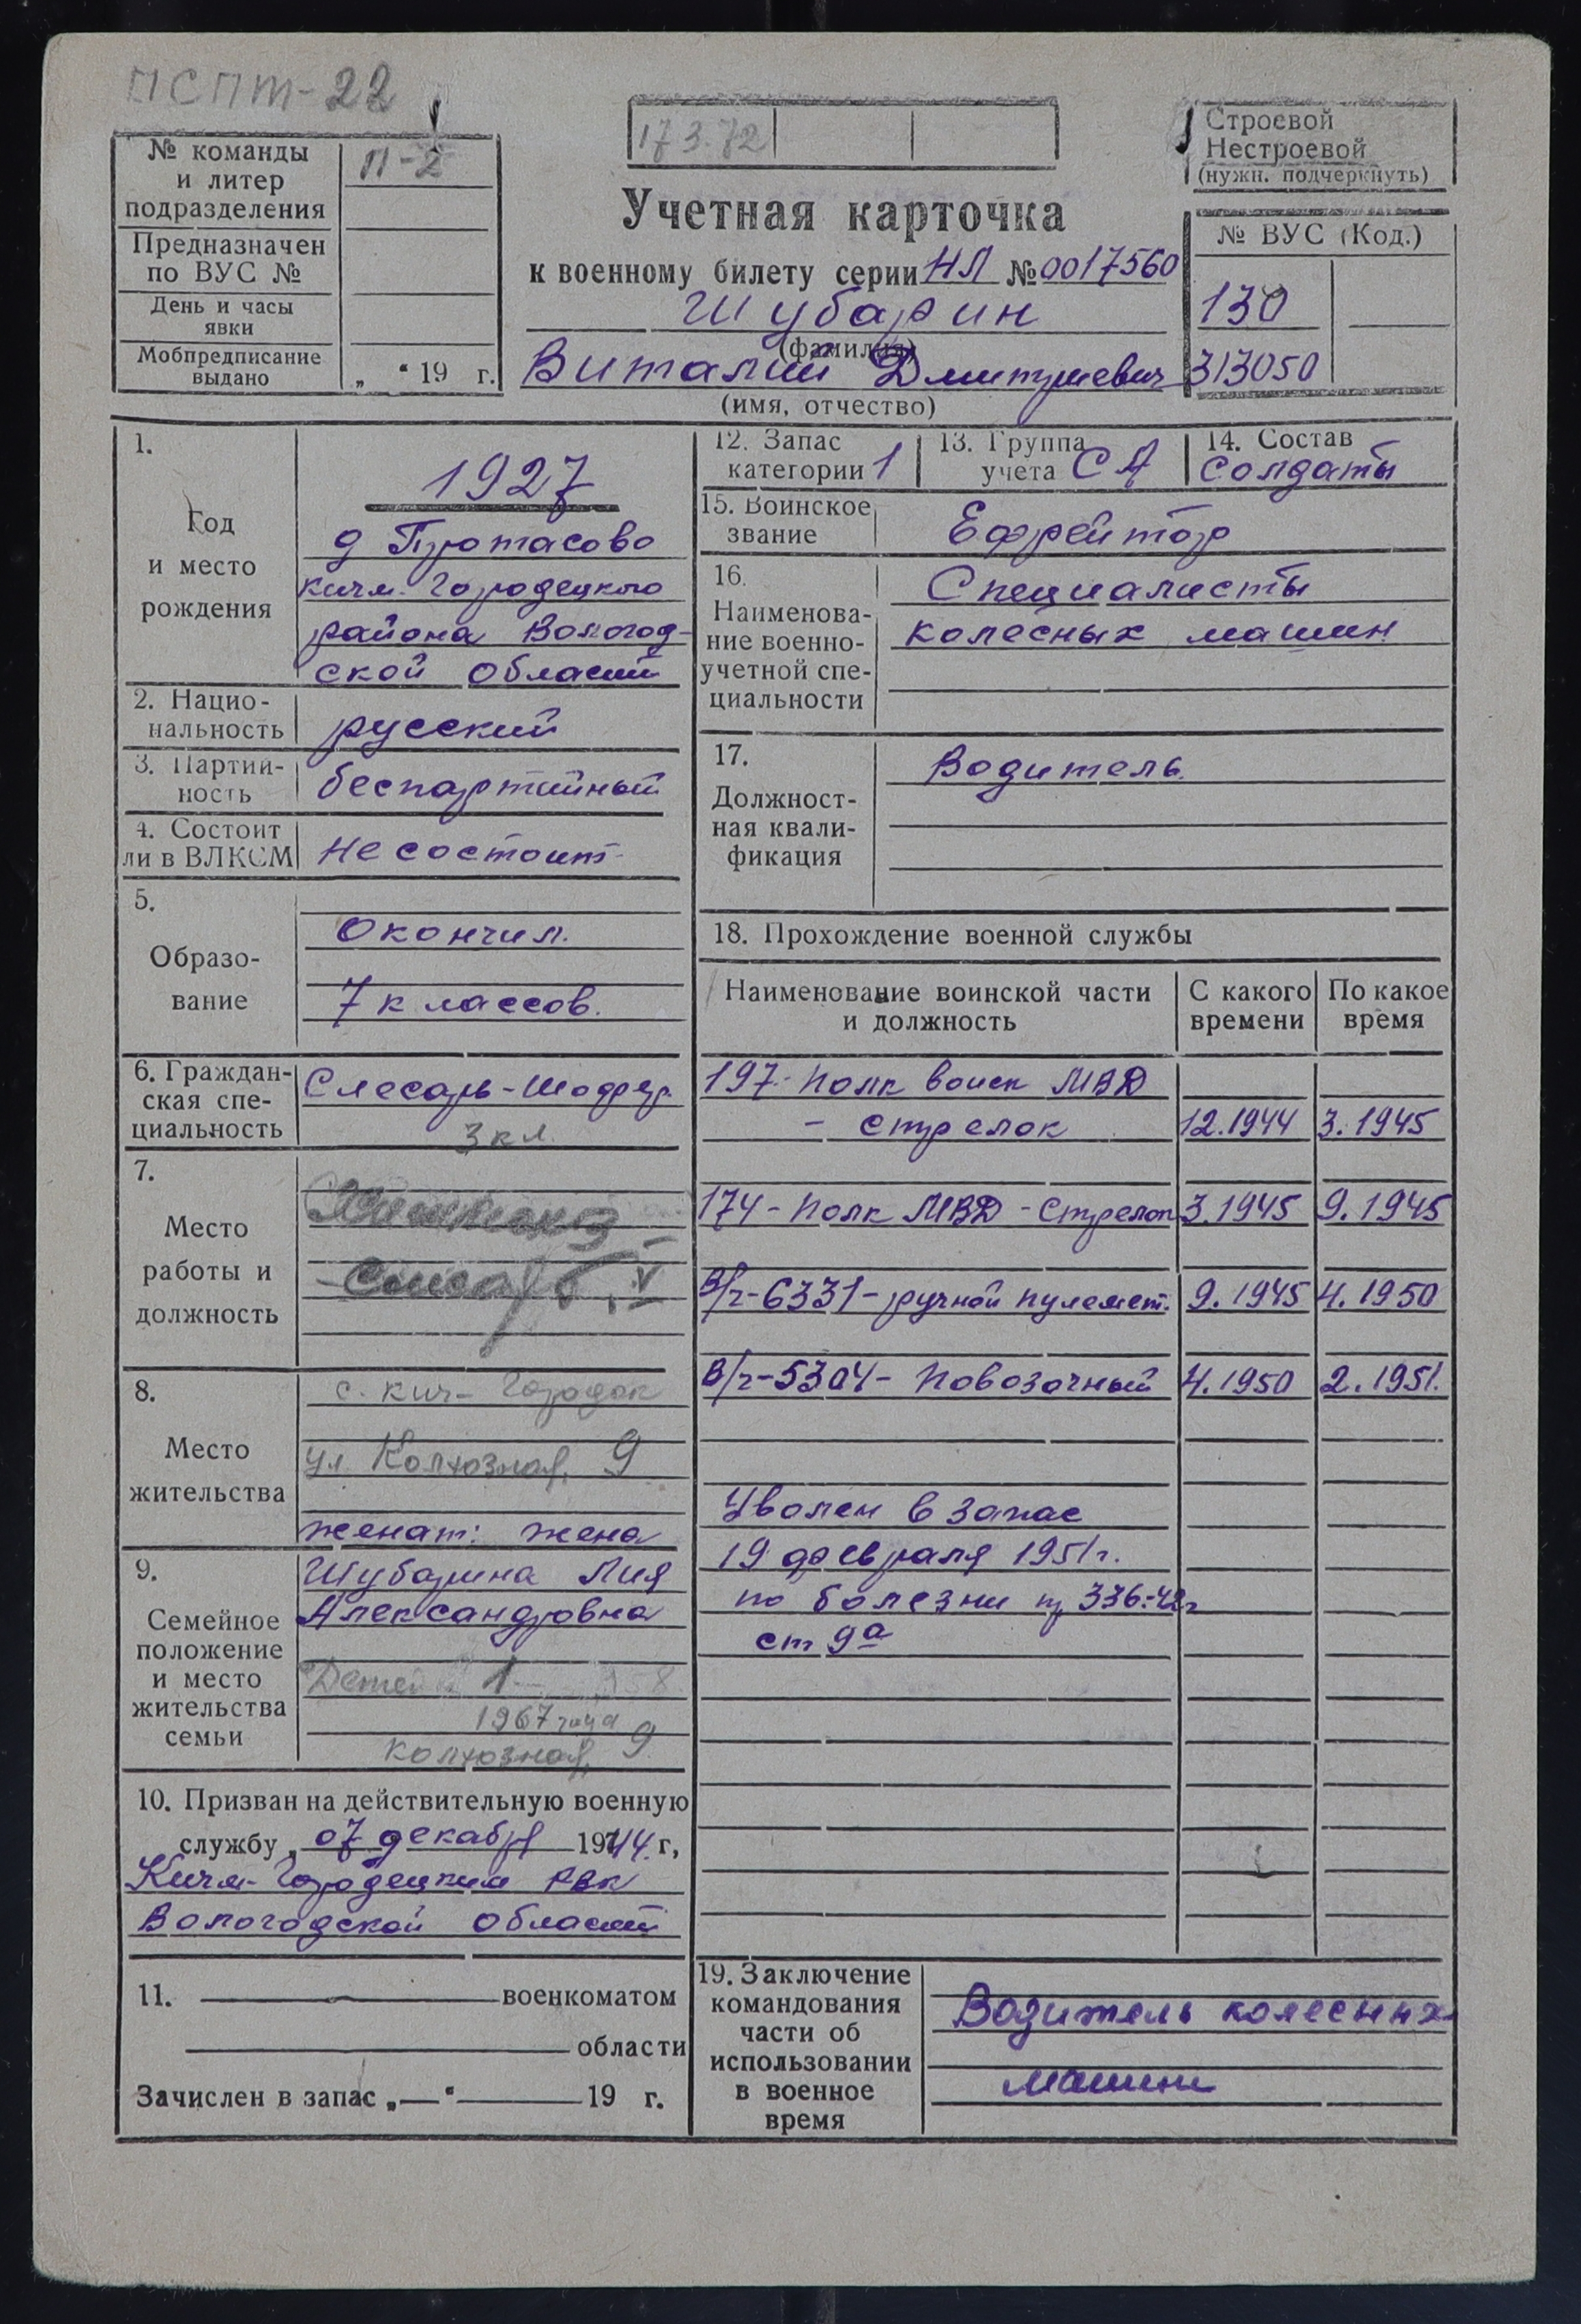 ПСПТ-22
№ команды
и литер
подразделения
П-2
Предназначен
по ВУС №
День и часы
явки
Мобпредписание
выдано
„ “ 19 г.
17 3.72
Строевой
Нестроевой
(нужн. подчеркнуть)
Учетная карточка
к военному билету серии НЛ № 0017560
Шубарин
(фамилия)
Виталий Дмитриевич
(имя, отчество)
№ ВУС (Код.)
130
313050
1.
Год
и место
рождения
1927
д Протасово
Кичм-Городецкого
района Вологод-
ской области
2. Нацио-
нальность
русский
3. Партий-
ность
беспартийный
4. Состоит
ли в ВЛКСМ
не состоит
5.
Образо-
вание
Окончил.
7 классов.
6. Граждан-
ская спе-
циальность
Слесарь-Шофер.
3 кл.
7.
Место
работы и
должность
8.
Место
жительства
с. Кич-Городок
ул. Колхозная, 9
женат: жена
9.
Семейное
положение
и место
жительства
семьи
Шубарина Лия
Александровна
Детей 1
1967 года
Колхозная, 9
10. Призван на действительную военную
службу „ 07 декабря 1944 г,
Кичм-Городецким РВК
Вологодской области
11. военкоматом
области
Зачислен в запас „—“ 19 г.
12. Запас
категории 1
13. Группа
учета СА
14. Состав
солдаты
15. Воинское
звание
Ефрейтор
16.
Наименова-
ние военно-
учетной спе-
циальности
Специалисты
колесных машин
17.
Должност-
ная квали-
фикация
Водитель.
18. Прохождение военной службы
Наименование воинской части
и должность
С какого
времени
По какое
время
197-полк войск МВД
- стрелок 12.1944 3.1945
174-полк МВД-Стрелок 3.1945 9.1945
В/ч-6331-ручной пулемет. 9.1945 4.1950
В/ч-5304-Повозочный 4.1950 2.1951.
Уволен в запас
19 февраля 1951г.
по болезни пр 336-42г
ст 9а
19. Заключение
командования
части об
использовании
в военное
время
Водитель колесных
машин